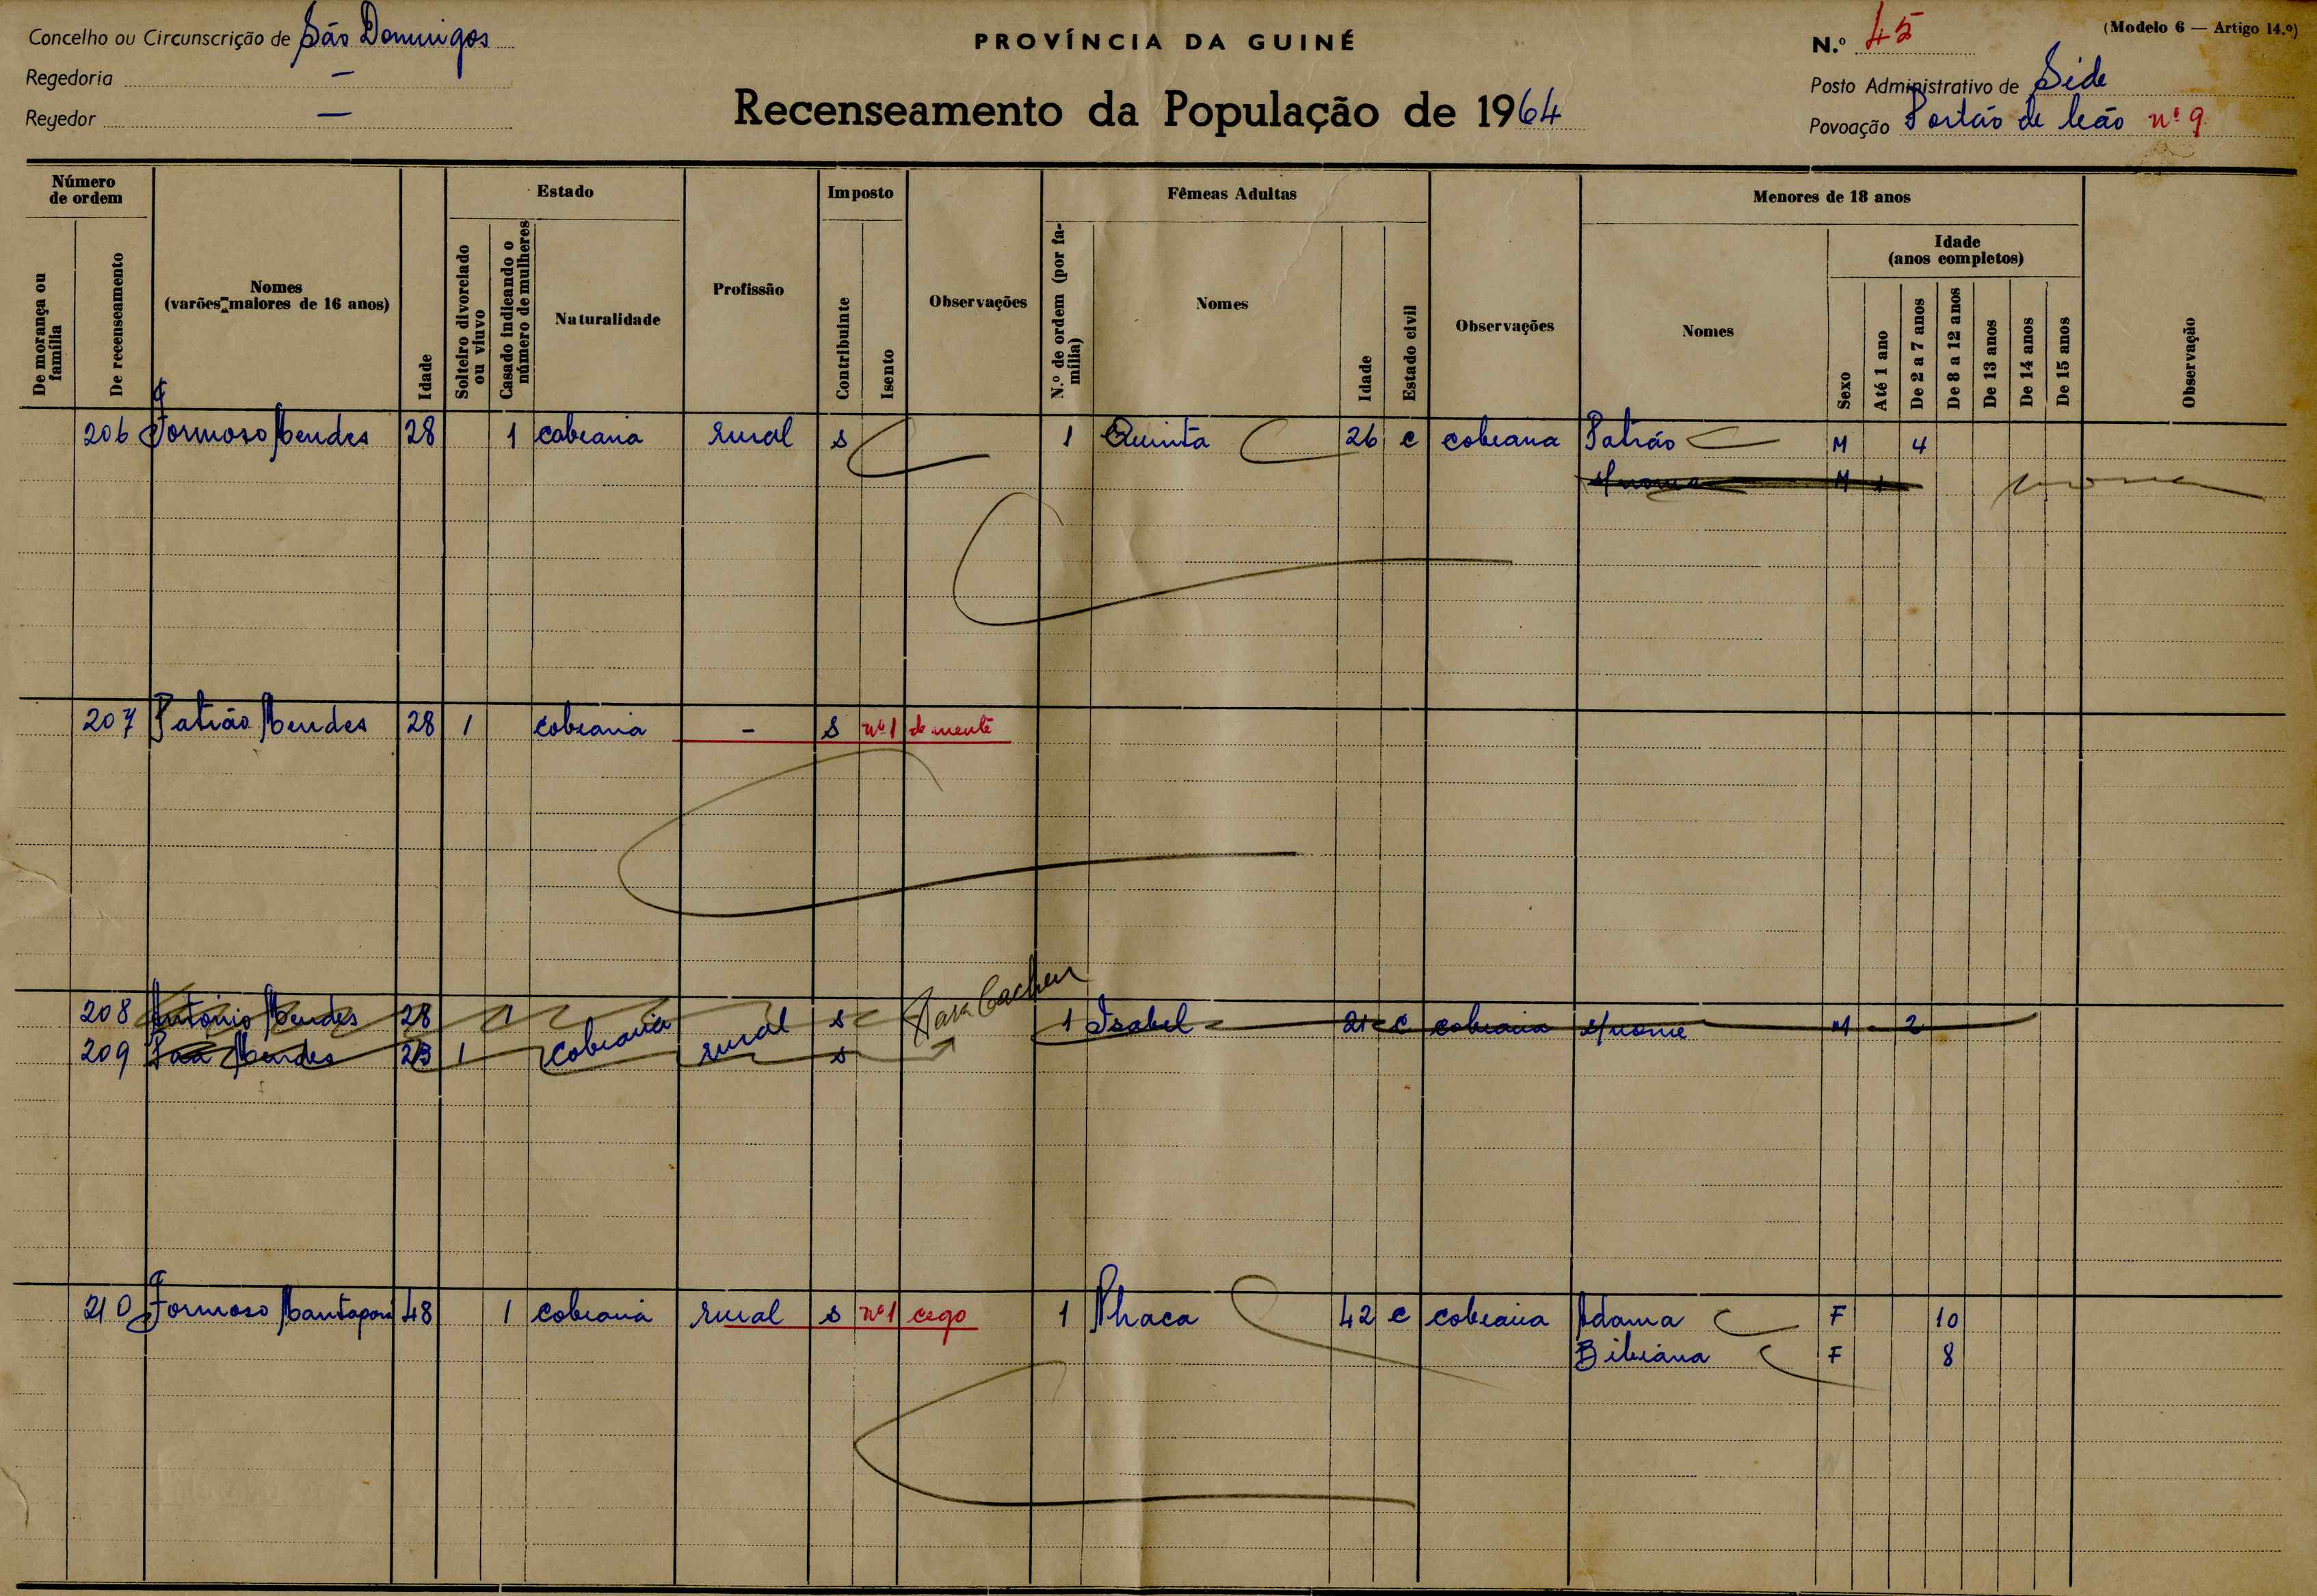 Concelho ou Circunscrição de São Domingos
Regedoria —
Regedor —
PROVÍNCIA DA GUINÉ
Recenseamento da População de 1964
(Modelo 6 — Artigo 14.º)
N.º 45
Posto Administrativo de Sede
Povoação Portão de Leão nº 9
Número de ordem
De morança ou família
De recenseamento
Nomes (varões maiores de 16 anos)
Idade
Estado
Solteiro divorciado ou viuvo
Casado indicando o número de mulheres
Naturalidade
Profissão
Imposto
Contribuinte
Isento
Observações
Fêmeas Adultas
N.º de ordem (por família)
Nomes
Idade
Estado civil
Observações
Menores de 18 anos
Nomes
Idade (anos completos)
Sexo
Até 1 ano
De 2 a 7 anos
De 8 a 12 anos
De 13 anos
De 14 anos
De 15 anos
Observação
206 Formoso Mendes 28 1 cobiana rural s 1 Quinta 26 c cobiana Patrão M 4
s/nome M 1
207 Patrão Mendes 28 1 cobiana - s nº 1 demente
208 António Mendes 28 1 cobiana rural s Para Cacheu 1 Isabel 21 c cobiana s/nome M 2
209 Mendes 23 1 s
210 Formoso 48 1 cobiana rural s nº 1 cego 1 42 c cobiana Adama F 10
Bibiana F 8